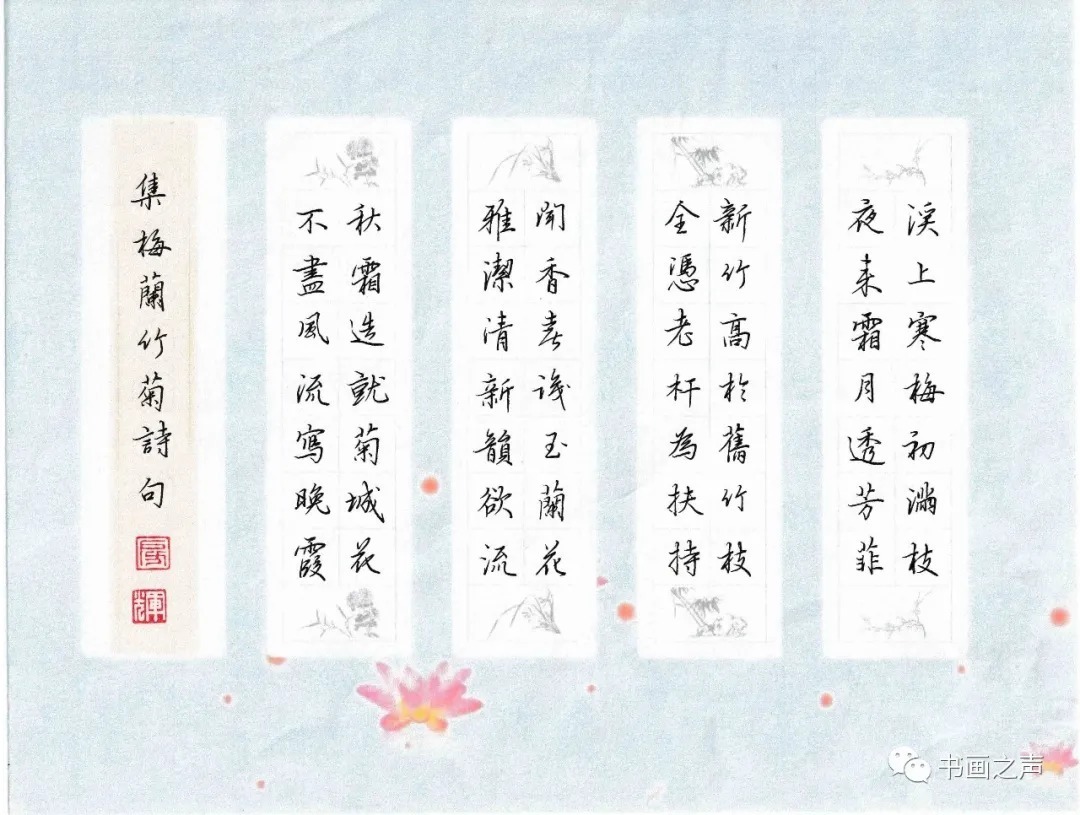 溪上寒梅初滿枝
夜来霜月透芳菲
新竹高於舊竹枝
全憑老杆為扶持
聞香春識玉蘭花
雅潔清新韻欲流
秋霜造就菊城花
不盡風流寫晚霞
集梅蘭竹菊詩句
輝
书画之声